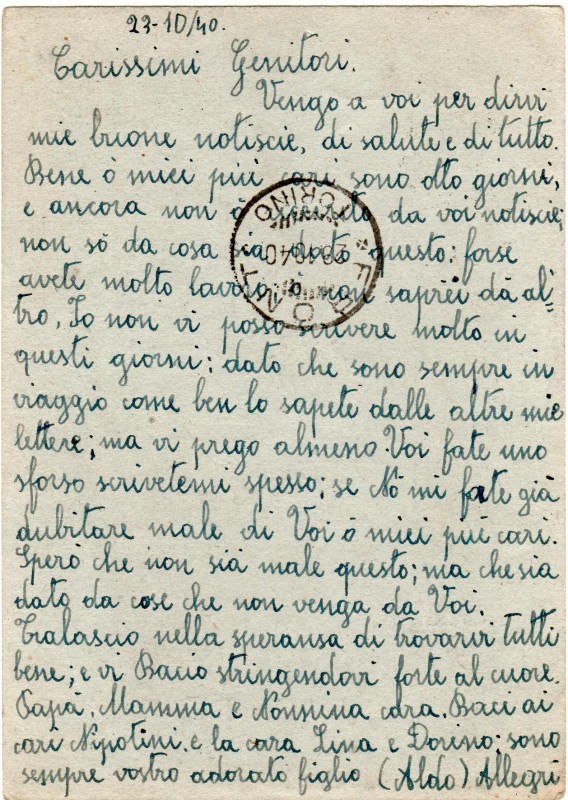 23-10/40.
Carissimi Genitori.
Vengo a voi per dirvi
mie buone notiscie, di salute e di tutto.
Bene ò miei più cari sono otto giorni,
e ancora non ò da voi notiscie;
non sò da cosa sia dato questo: forse
avete molto lavoro, ò non saprei dà al=
tro, Io non vi posso scrivere molto in
questi giorni; dato che sono sempre in
viaggio come ben lo sapete dalle altre mie
lettere; ma vi prego almeno. Voi fate uno
sforso scrivetemi spesso; se Nò mi fate già
dubitare male di Voi ò miei più cari.
Sperò che non sià male questo; ma che sia
dato da cose che non venga da Voi.
Tralascio nella speransa di trovarvi tutti
bene; e vi Bacio stringendovi forte al cuore.
Papà, Mamma e Nonnina cara. Baci ai
cari Nipotini. e la cara Lina e Dorino; sono
sempre vostro adorato figlio (Aldo) Allegri
TORINO
28 10 40